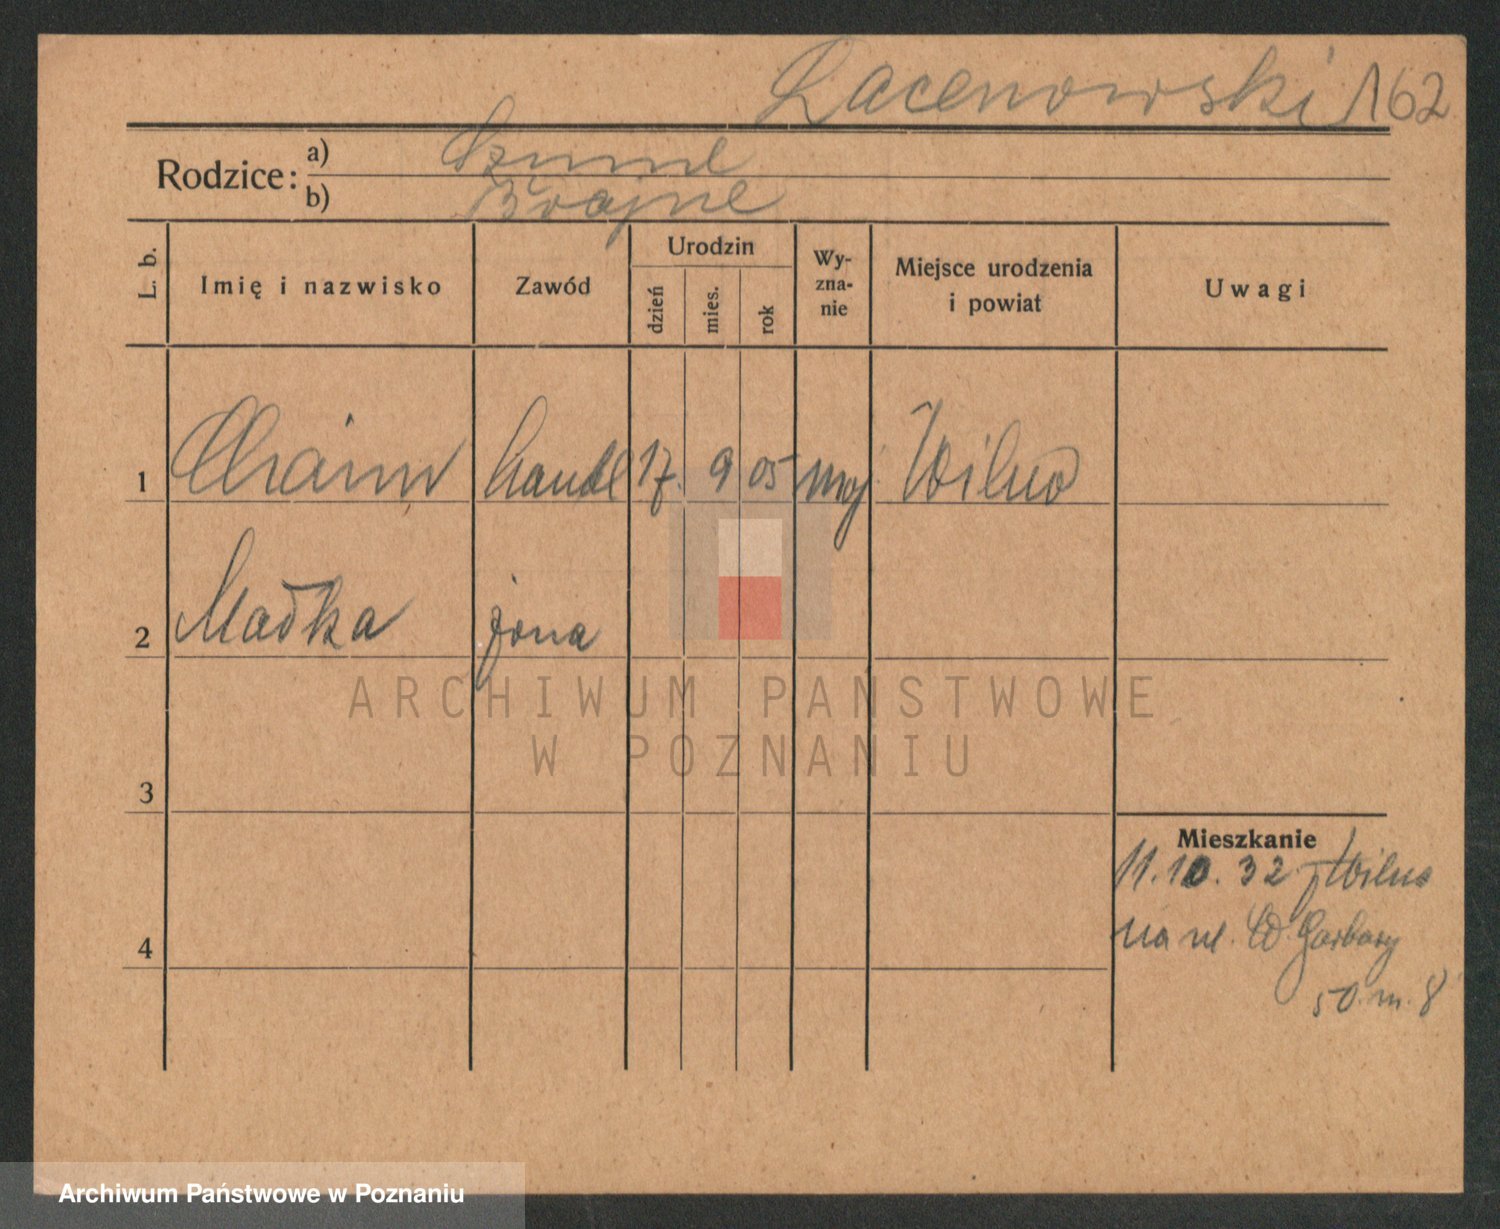 Lacenowski 162
Rodzice: a) Szmul
b) Brajne
L. b. Imię i nazwisko Zawód Urodzin dzień mies. rok Wy-zna-nie Miejsce urodzenia i powiat Uwagi
1 Chaim handl 17. 9 05 moj. Wilno
2 Madka żona
3
Mieszkanie
11.10.32 z Wilna
na ul. W. Garbary
4
50. m. 8
ARCHIWUM PAŃSTWOWE
W POZNANIU
Archiwum Państwowe w Poznaniu